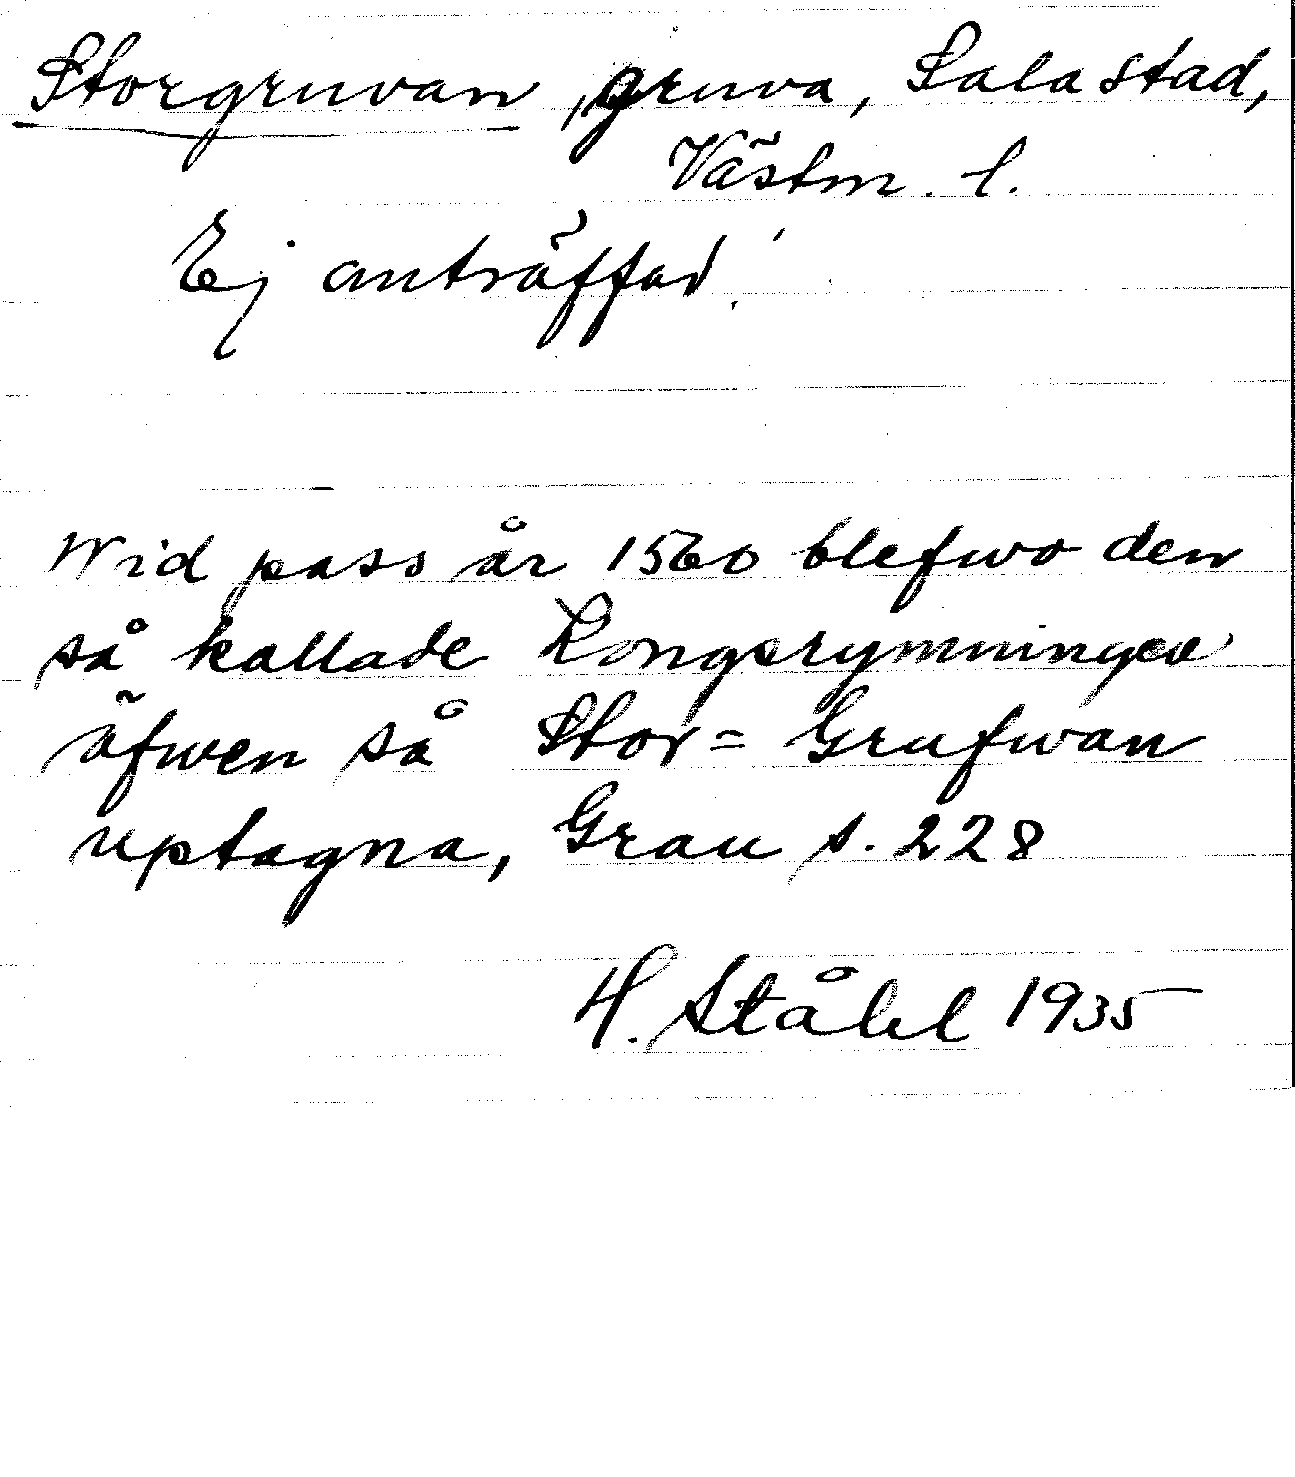 Storgruvan, gruva, Sala stad,
Västm. l.
Ej anträffad!
Wid pass år 1560 blefwo den
så kallade Kongsrymningen
äfwen så Stor= Grufwan
uptagna, Grau s. 228
H. Ståhl 1935